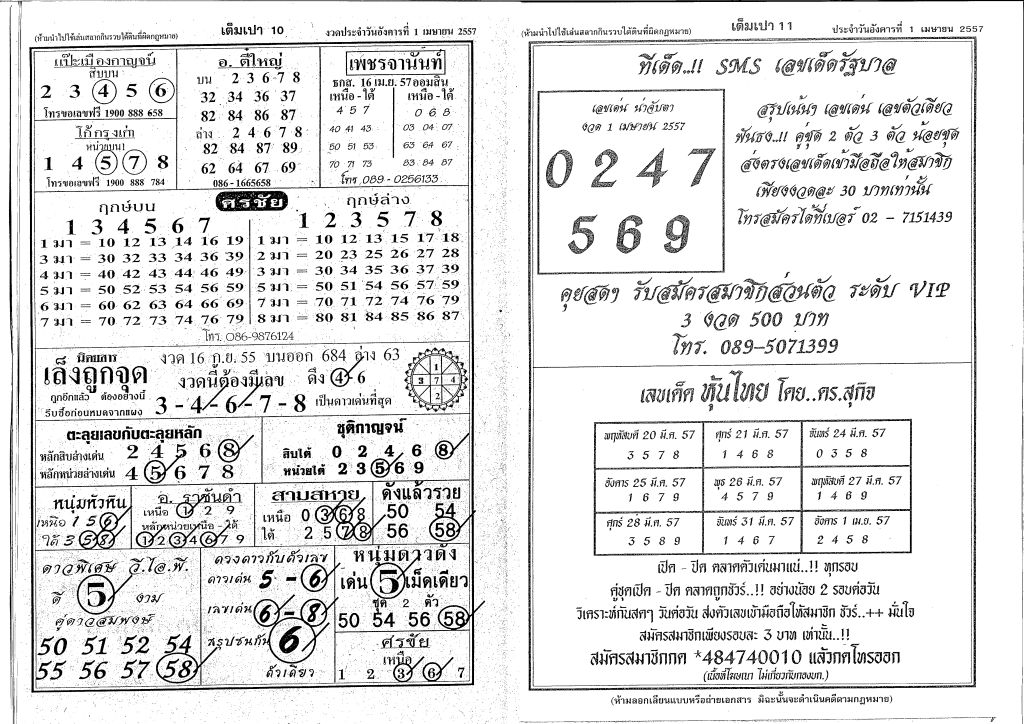 (ห้ามนำไปใช้เล่นสลากกินรวบได้ดินที่ผิดกฎหมาย) เต็มเปา 10 งวดประจำวันอังคารที่ 1 เมษายน 2557
แป๊ะเมืองกาญจน์
สิบบน
2 3 4 5 6
โทรขอเลขฟรี 1900 888 658
โก้ กรุงเก่า
หน่วยบน!
1 4 5 7 8
โทรขอเลขฟรี 1900 888 784
อ. ตี๋ใหญ่
บน 2 3 6 7 8
32 34 36 37
82 84 86 87
ล่าง 2 4 6 7 8
82 84 87 89
62 64 67 69
086-1665658
เพชรจานันท์
ธกส. 16 เม.ย. 57 ออมสิน
เหนือ - ใต้ เหนือ - ใต้
4 5 7 0 6 8
40 41 43 03 04 07
50 51 53 63 64 67
70 71 73 83 84 87
โทร 089-0256133
ศรชัย
ฤกษ์บน ฤกษ์ล่าง
1 3 4 5 6 7 1 2 3 5 7 8
1 มา = 10 12 13 14 16 19 1 มา = 10 12 13 15 17 18
3 มา = 30 32 33 34 36 39 2 มา = 20 23 25 26 27 28
4 มา = 40 42 43 44 46 49 3 มา = 30 34 35 36 37 39
5 มา = 50 52 53 54 56 59 5 มา = 50 51 53 54 57 59
6 มา = 60 62 63 64 66 69 7 มา = 70 71 72 74 76 79
7 มา = 70 72 73 74 76 79 8 มา = 80 81 84 85 86 87
โทร. 086-9876124
นิตยสาร
เล็งถูกจุด
ถูกอีกแล้ว ต้องอย่างนี้
รีบซื้อก่อนหมดจากแผง
งวด 16 ก.ย. 55 บนออก 684 ล่าง 63
งวดนี้ต้องมีเลข ดึง 4 - 6
3 - 4 - 6 - 7 - 8 เป็นดาวเด่นที่สุด
1
3 7 4
2
ตะลุยเลขกับตะลุยหลัก
หลักสิบล่างเด่น 2 4 5 6 8
หลักหน่วยล่างเด่น 4 5 6 7 8
ชุติกาญจน์
สิบใต้ 0 2 4 6 8
หน่วยใต้ 2 3 5 6 9
หนุ่มหัวหิน
เหนือ 1 5 6
ใต้ 3 5 8
อ. ราชันดำ
เหนือ 1 2 9
หลักหน่วยเหนือ - ใต้
1 2 3 4 6 7 9
สามสหาย
เหนือ 0 3 6 8
ใต้ 2 5 7 8
ดังแล้วรวย
50 54
56 58
ดาวพิเศษ วี.ไอ.พี.
ดี 5 งาม
คู่ดาวสมพงษ์
50 51 52 54
55 56 57 58
ดวงดาวกับตัวเลข
ดาวเด่น 5 - 6
เลขเด่น 6 - 8
สรุปชนกัน 6
ตัวเดียว
หนุ่มดาวดัง
เด่น 5 เม็ดเดียว
ชุด 2 ตัว
50 54 56 58
ศรชัย
เหนือ
1 2 3 6 7
(ห้ามนำไปใช้เล่นสลากกินรวบได้ดินที่ผิดกฎหมาย) เต็มเปา 11 ประจำวันอังคารที่ 1 เมษายน 2557
ทีเด็ด..!! SMS เลขเด็ดรัฐบาล
เลขเด่น น่าจับตา
งวด 1 เมษายน 2557
0 2 4 7
5 6 9
สรุปเน้นๆ เลขเด่น เลขตัวเดียว
ฟันธง..!! คู่ชุด 2 ตัว 3 ตัว น้อยชุด
ส่งตรงเลขเด็ดเข้ามือถือให้สมาชิก
เพียงงวดละ 30 บาทเท่านั้น
โทรสมัครได้ที่เบอร์ 02 - 7151439
คุยสดๆ รับสมัครสมาชิกส่วนตัว ระดับ VIP
3 งวด 500 บาท
โทร. 089-5071399
เลขเด็ด หุ้นไทย โดย..ดร.สุกิจ
พฤหัสบดี 20 มี.ค. 57 ศุกร์ 21 มี.ค. 57 จันทร์ 24 มี.ค. 57
3 5 7 8 1 4 6 8 0 3 5 8
อังคาร 25 มี.ค. 57 พุธ 26 มี.ค. 57 พฤหัสบดี 27 มี.ค. 57
1 6 7 9 4 5 7 9 1 4 6 9
ศุกร์ 28 มี.ค. 57 จันทร์ 31 มี.ค. 57 อังคาร 1 เม.ย. 57
3 5 8 9 1 4 6 7 2 4 5 8
เปิด - ปิด ตลาดตัวเด่นมาแน่..!! ทุกรอบ
คู่ชุดเปิด - ปิด ตลาดถูกชัวร์..!! อย่างน้อย 2 รอบต่อวัน
วิเคราะห์กันสดๆ วันต่อวัน ส่งตัวเลขเข้ามือถือให้สมาชิก ชัวร์..++ มั่นใจ
สมัครสมาชิกเพียงรอบละ 3 บาท เท่านั้น..!!
สมัครสมาชิกกด *484740010 แล้วกดโทรออก
(เนื้อที่โฆษณา ไม่เกี่ยวกับกองบก.)
(ห้ามลอกเลียนแบบหรือถ่ายเอกสาร มิฉะนั้นจะดำเนินคดีตามกฎหมาย)